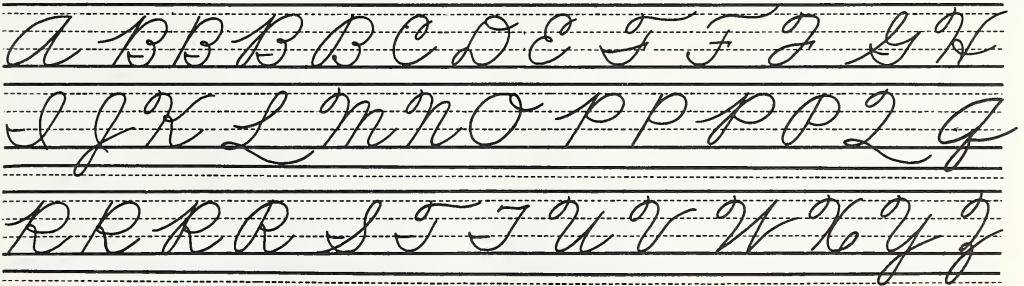 A B B B B C D E F F F G H
I J K L M N O P P P P Q Q
R R R R S T T U V W X Y Z